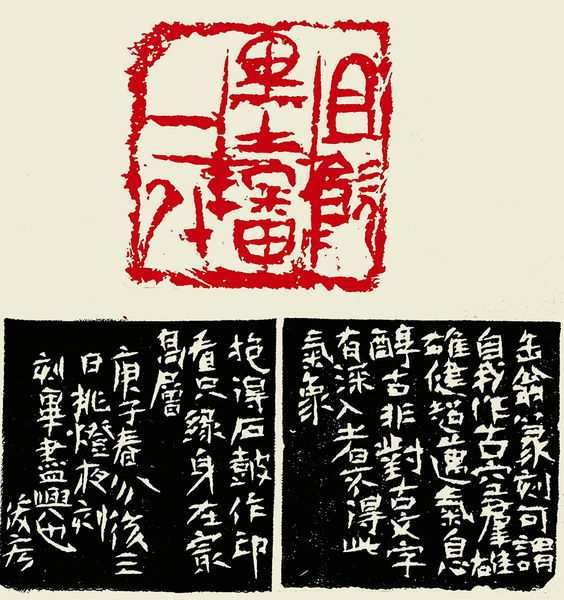 墨瀋
缶翁篆刻可謂
自我作古空羣雄
雄健超邁氣息
醇古非對古文字
有深入者不得此
氣象
抱得石鼓作印
看只緣身在最
高層
庚子春分後三
日挑燈夜刻
刻畢盡興也